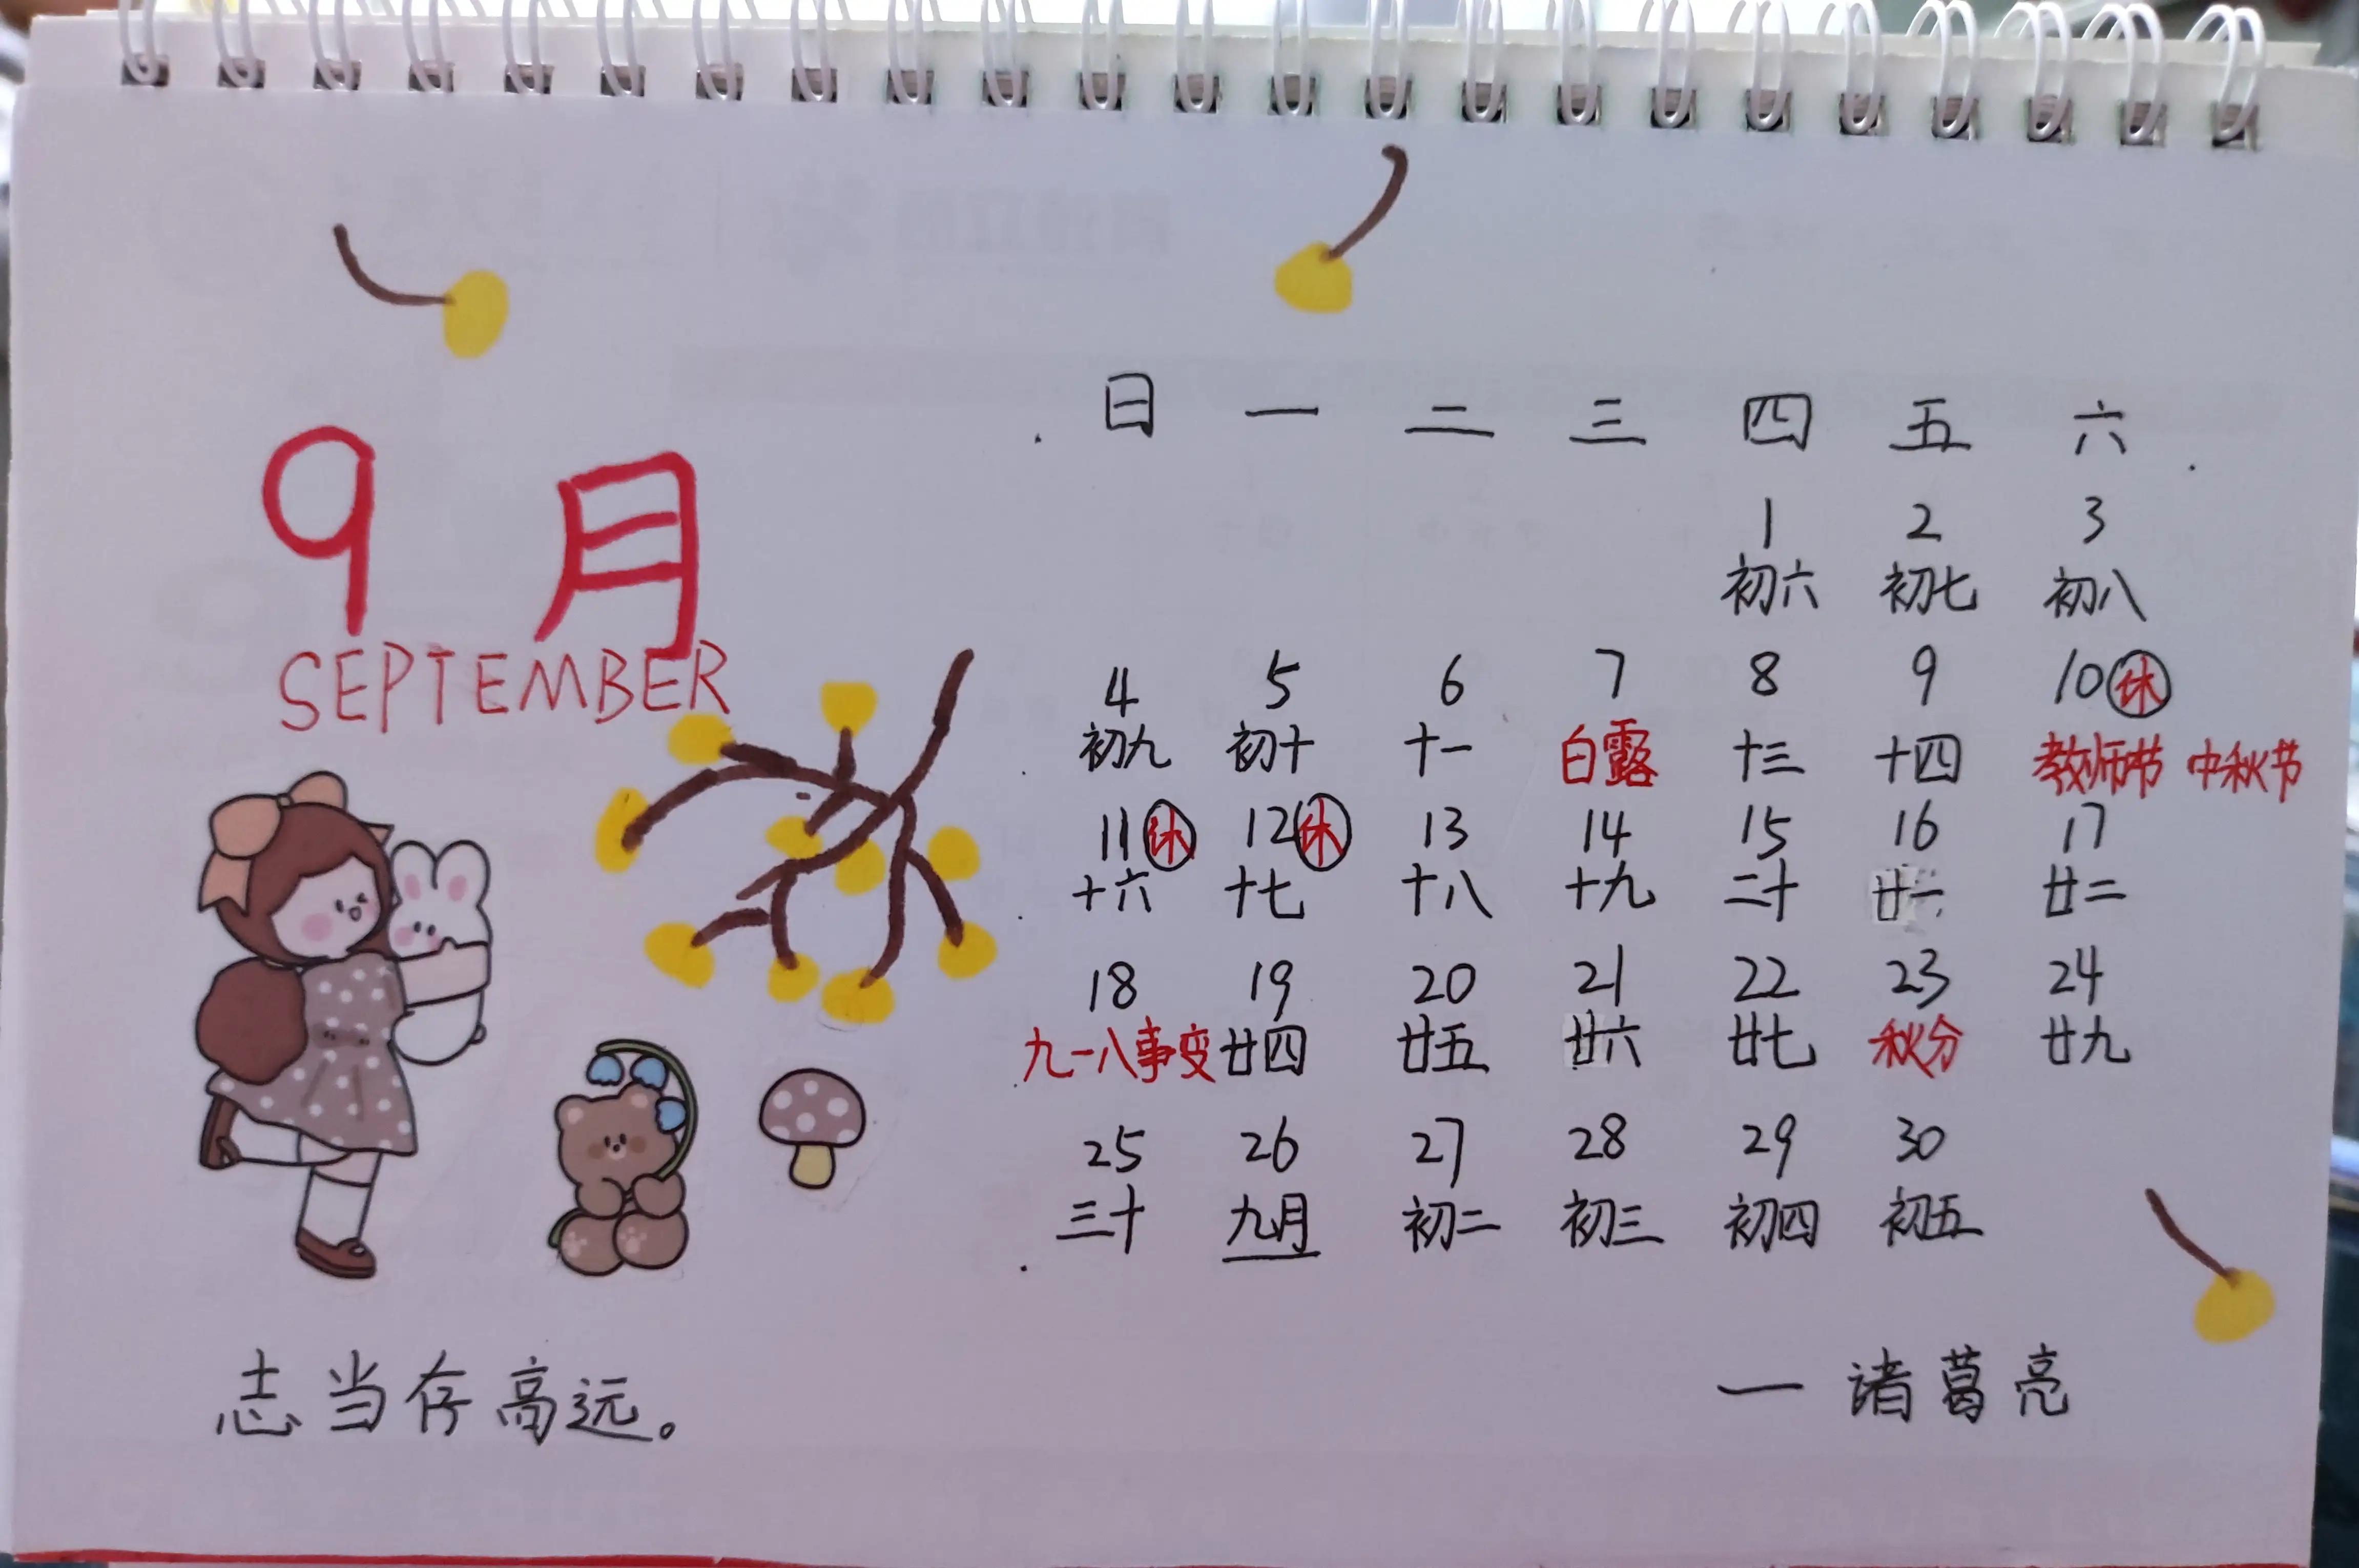 9月
SEPTEMBER
日 一 二 三 四 五 六
1 2 3
初六 初七 初八
4 5 6 7 8 9 10 休
初九 初十 十一 白露 十三 十四 教师节 中秋节
11 休 12 休 13 14 15 16 17
十六 十七 十八 十九 二十 廿一 廿二
18 19 20 21 22 23 24
九一八事变 廿四 廿五 廿六 廿七 秋分 廿九
25 26 27 28 29 30
三十 九月 初二 初三 初四 初五
志当存高远。
— 诸葛亮